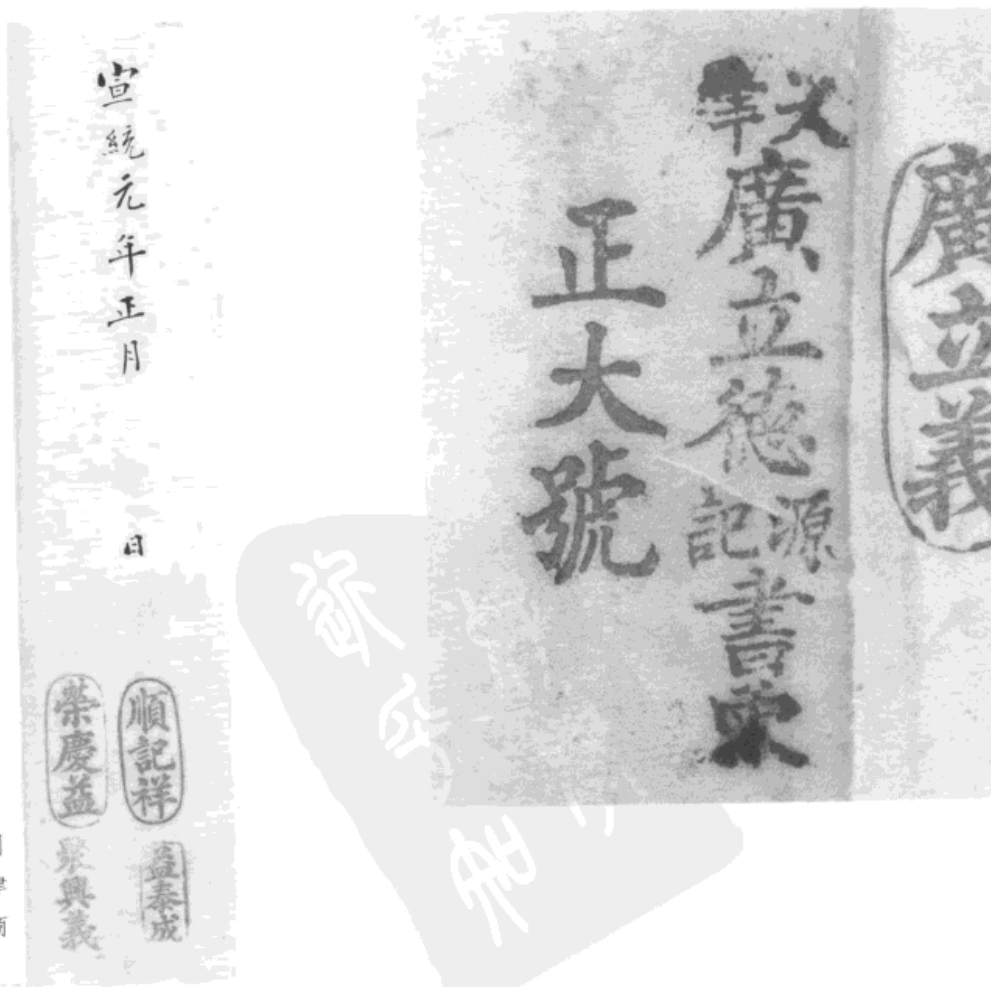 廣立義
廣立德源記書柬
正大號
宣統元年正月 日
順記祥
益泰成
榮慶益
聚興義